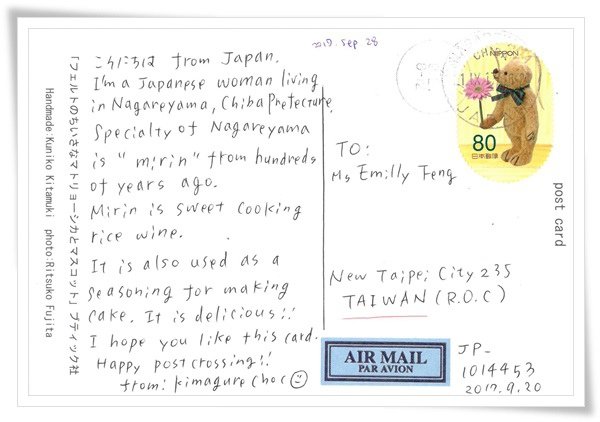 こんにちは from Japan.
I'm a Japanese woman living
in Nagareyama, Chiba Prefecture.
Specialty of Nagareyama
is "mirin" from hundreds
of years ago.
Mirin is sweet cooking
rice wine.
It is also used as a
seasoning for making
cake. It is delicious!!
I hope you like this card.
Happy postcrossing!!
from: kimagure choc
2017. Sep 28
NIPPON
80
日本郵便
TO:
Ms Emilly Feng
New Taipei City 235
TAIWAN (R.O.C)
AIR MAIL
PAR AVION
JP-
1014453
2017.9.20
post card
「フェルトのちいさなマトリョーシカとマスコット」ブティック社
Handmade:Kuniko Kitamuki photo:Ritsuko Fujita